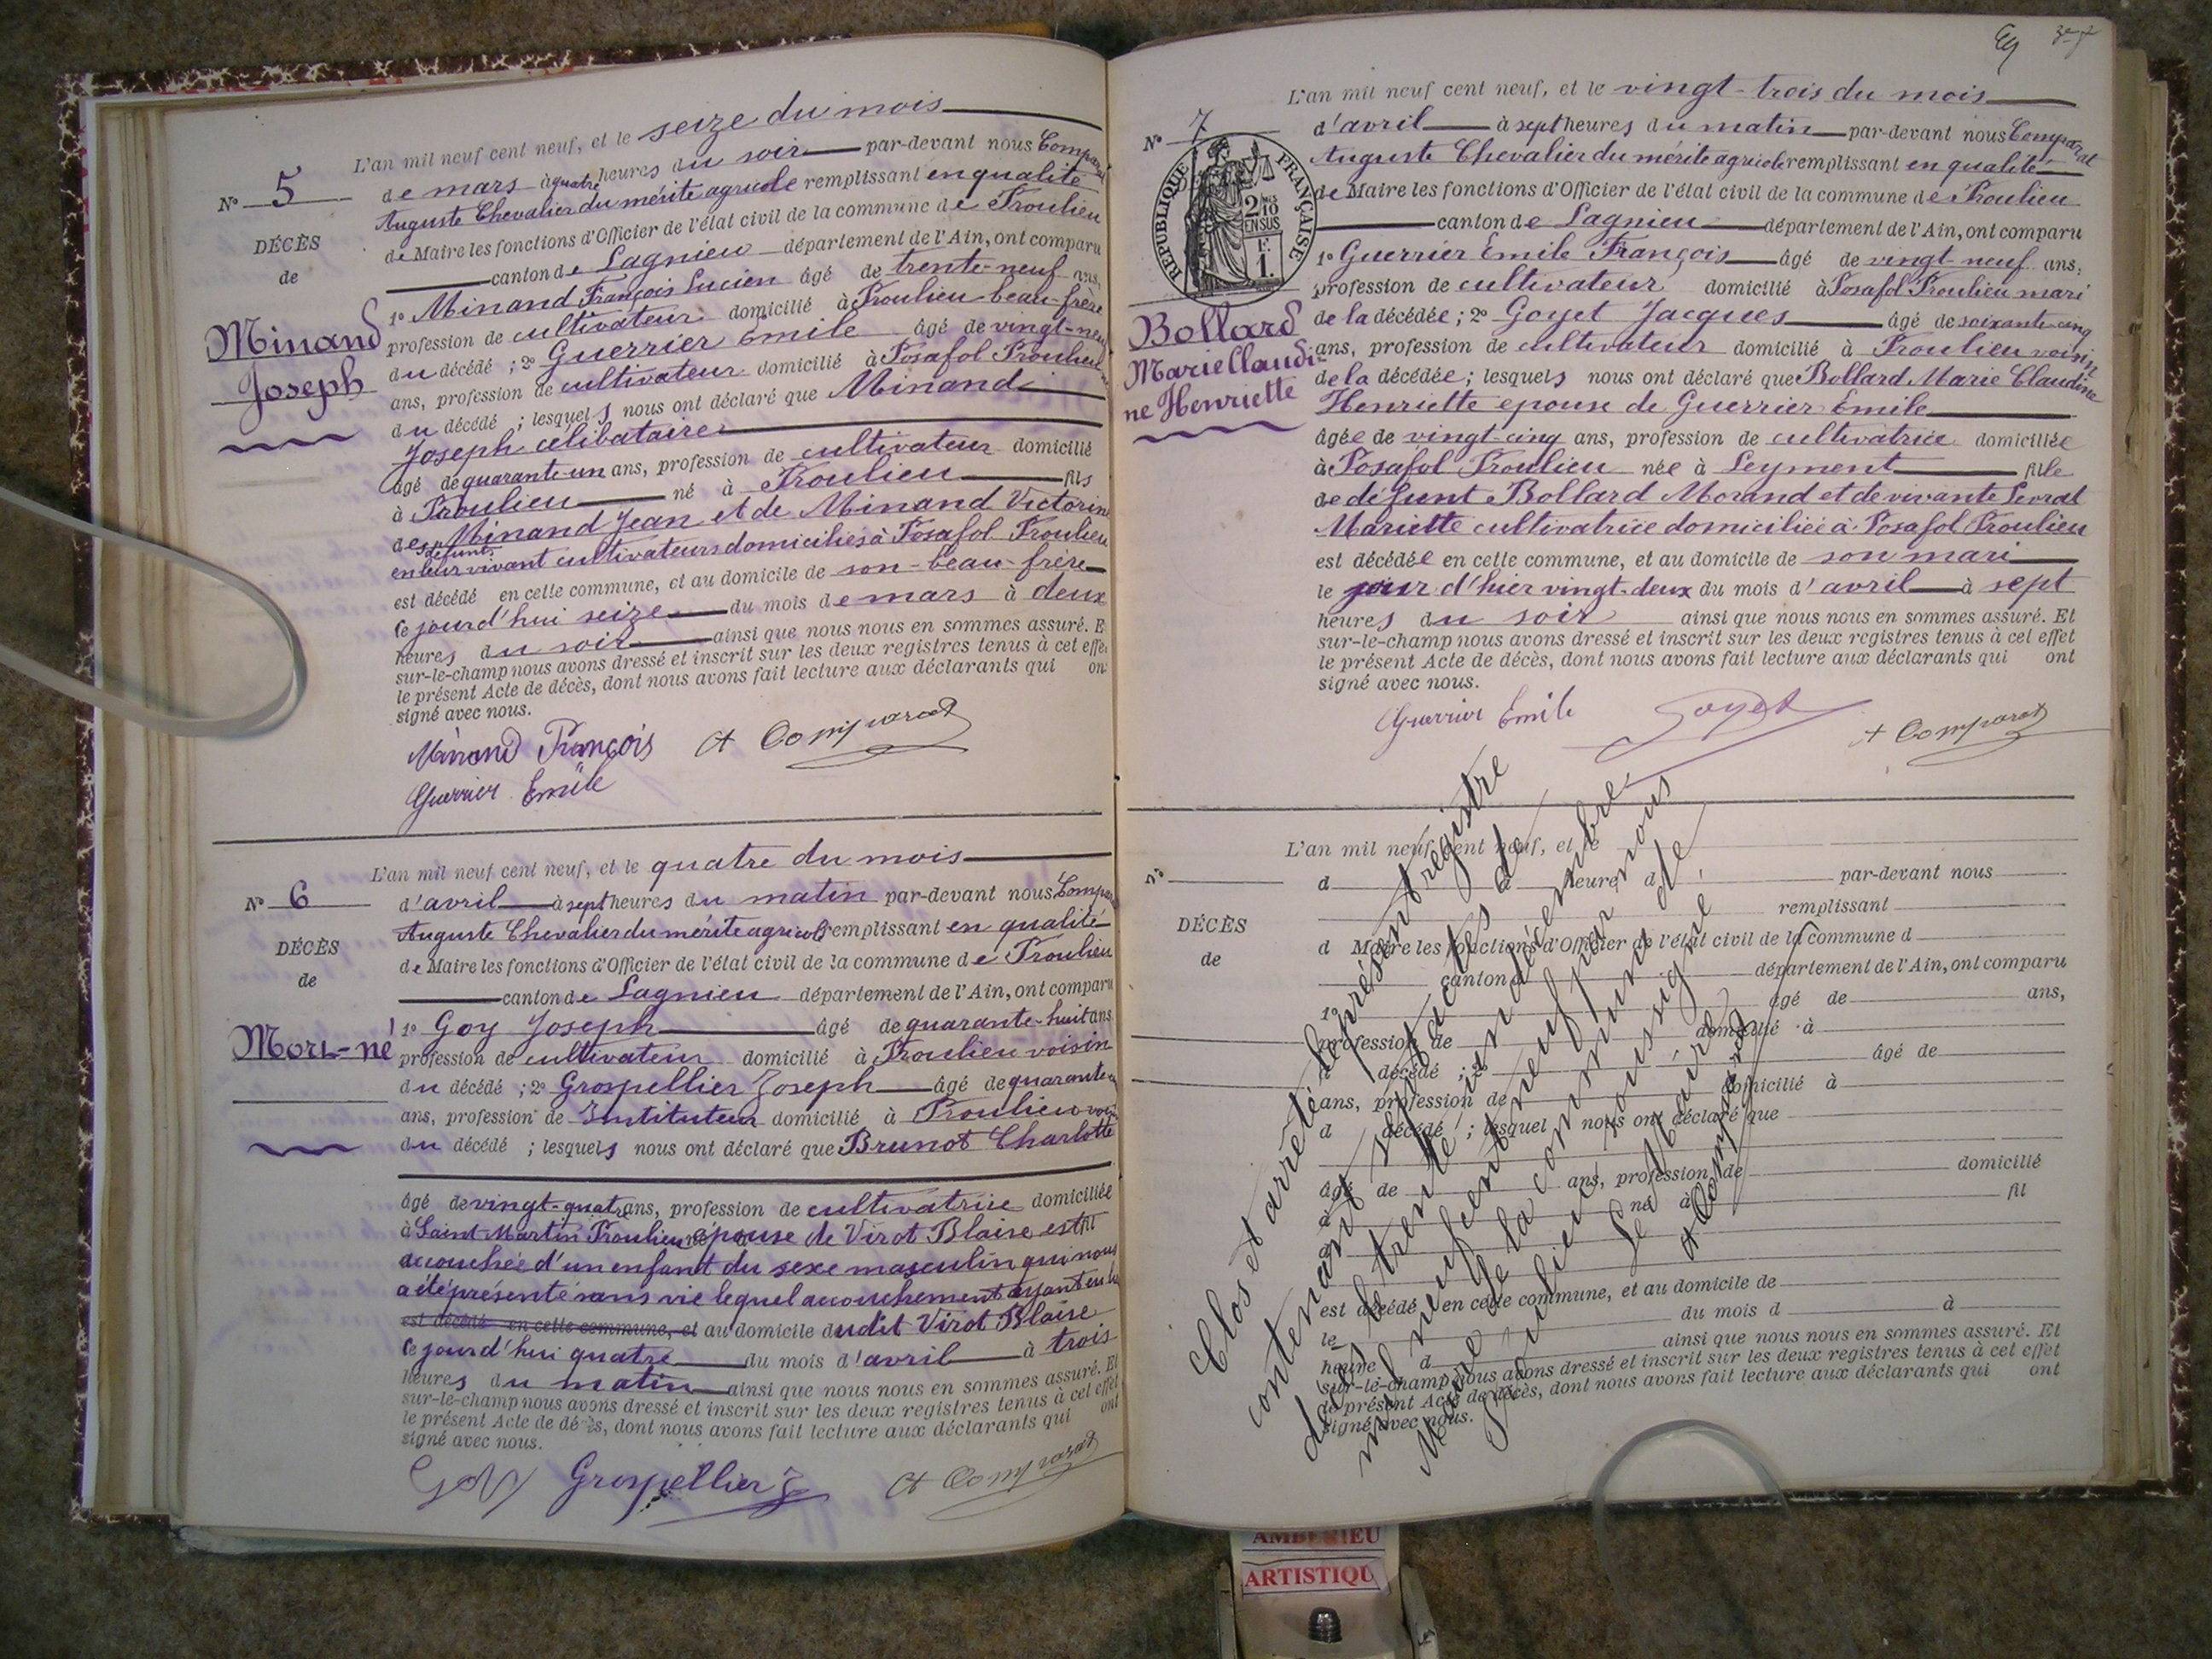 L'an mil neuf cent neuf, et le seize du mois
N° 5
de mars à quatre heures du soir par-devant nous Comparat
Auguste Chevalier du mérite agricole remplissant en qualité
DÉCÈS
de Maire les fonctions d'Officier de l'état civil de la commune de Proulieu
de
canton de Lagnieu département de l'Ain, ont comparu
1° Minand François Lucien âgé de trente-neuf ans,
Minand
profession de cultivateur domicilié à Proulieu beau-frère
Joseph
du décédé ; 2° Guerrier Emile âgé de vingt-neuf
ans, profession de cultivateur domicilié à Posafol Proulieu
du décédé ; lesquels nous ont déclaré que Minand
Joseph célibataire
âgé de quarante-un ans, profession de cultivateur domicilié
à Proulieu né à Proulieu fils
des défunts Minand Jean et de Minand Victorine
en leur vivant cultivateurs domiciliés à Posafol Proulieu
est décédé en cette commune, et au domicile de son beau-frère
le jourd'hui seize du mois de mars à deux
heures du soir ainsi que nous nous en sommes assuré. E
sur-le-champ nous avons dressé et inscrit sur les deux registres tenus à cet effe
le présent Acte de décès, dont nous avons fait lecture aux déclarants qui on
signé avec nous.
Minand François A Comparat
Guerrier Emile
L'an mil neuf cent neuf, et le quatre du mois
N° 6
d'avril à sept heures du matin par-devant nous Compa
Auguste Chevalier du mérite agricole remplissant en qualité
DÉCÈS
de Maire les fonctions d'Officier de l'état civil de la commune de Proulieu
de
canton de Lagnieu département de l'Ain, ont comparu
Mort-né
1° Goy Joseph âgé de quarante-huit ans
profession de cultivateur domicilié à Proulieu voisin
du décédé ; 2° Grospellier Joseph âgé de quarante
ans, profession de Instituteur domicilié à Proulieu voisin
du décédé ; lesquels nous ont déclaré que Brunot Charlotte
âgé de vingt-quatre ans, profession de cultivatrice domiciliée
à Saint Martin Proulieu épouse de Virot Blaise est
accouchée d'un enfant du sexe masculin qui nous
a été présenté sans vie lequel accouchement ayant eu lieu
est décédé en cette commune, et au domicile dudit Virot Blaise
le jourd'hui quatre du mois d'avril à trois
heures du matin ainsi que nous nous en sommes assuré. Et
sur-le-champ nous avons dressé et inscrit sur les deux registres tenus à cet effet
le présent Acte de décès, dont nous avons fait lecture aux déclarants qui ont
signé avec nous.
Goy Grospellier J A Comparat
L'an mil neuf cent neuf, et le vingt-trois du mois
N° 7
d'avril à sept heures du matin par-devant nous Comparat
Auguste Chevalier du mérite agricole remplissant en qualité
RÉPUBLIQUE FRANÇAISE
2/10 EN SUS
1 F.
de Maire les fonctions d'Officier de l'état civil de la commune de Proulieu
canton de Lagnieu département de l'Ain, ont comparu
1° Guerrier Emile François âgé de vingt-neuf ans,
profession de cultivateur domicilié à Posafol Proulieu mari
Bollard
Marie Claudi-
ne Henriette
de la décédée ; 2° Goyet Jacques âgé de soixante-cinq
ans, profession de cultivateur domicilié à Proulieu voisin
de la décédée ; lesquels nous ont déclaré que Bollard Marie Claudine
Henriette epouse de Guerrier Emile
âgée de vingt-cinq ans, profession de cultivatrice domiciliée
à Posafol Proulieu née à Leyment fille
de défunt Bollard Morand et de vivante
Mariette cultivatrice domiciliée à Posafol Proulieu
est décédée en cette commune, et au domicile de son mari
le jour d'hier vingt-deux du mois d'avril à sept
heures du soir ainsi que nous nous en sommes assuré. Et
sur-le-champ nous avons dressé et inscrit sur les deux registres tenus à cet effet
le présent Acte de décès, dont nous avons fait lecture aux déclarants qui ont
signé avec nous.
Guerrier Emile Goyet A Comparat
L'an mil neuf cent neuf, et le
N°
d à heure d par-devant nous
remplissant
DÉCÈS
d Maire les fonctions d'Officier de l'état civil de la commune d
de
canton d département de l'Ain, ont comparu
1° âgé de ans,
profession de domicilié à
d décédé ; 2° âgé de
ans, profession de domicilié à
d décédé ; lesquel nous ont déclaré que
âgé de ans, profession de domicilié
à né à fil
d
est décédé en cette commune, et au domicile de
le du mois d à
heure d ainsi que nous nous en sommes assuré. Et
sur-le-champ nous avons dressé et inscrit sur les deux registres tenus à cet effet
le présent Acte de décès, dont nous avons fait lecture aux déclarants qui ont
signé avec nous.
Clos et arrêté le présent registre
contenant sept actes de
décès le trente un décembre
mil neuf cent neuf par nous
Maire de la commune de
Proulieu soussigné
Le Maire
A Comparat
AMBERIEU
ARTISTIQU